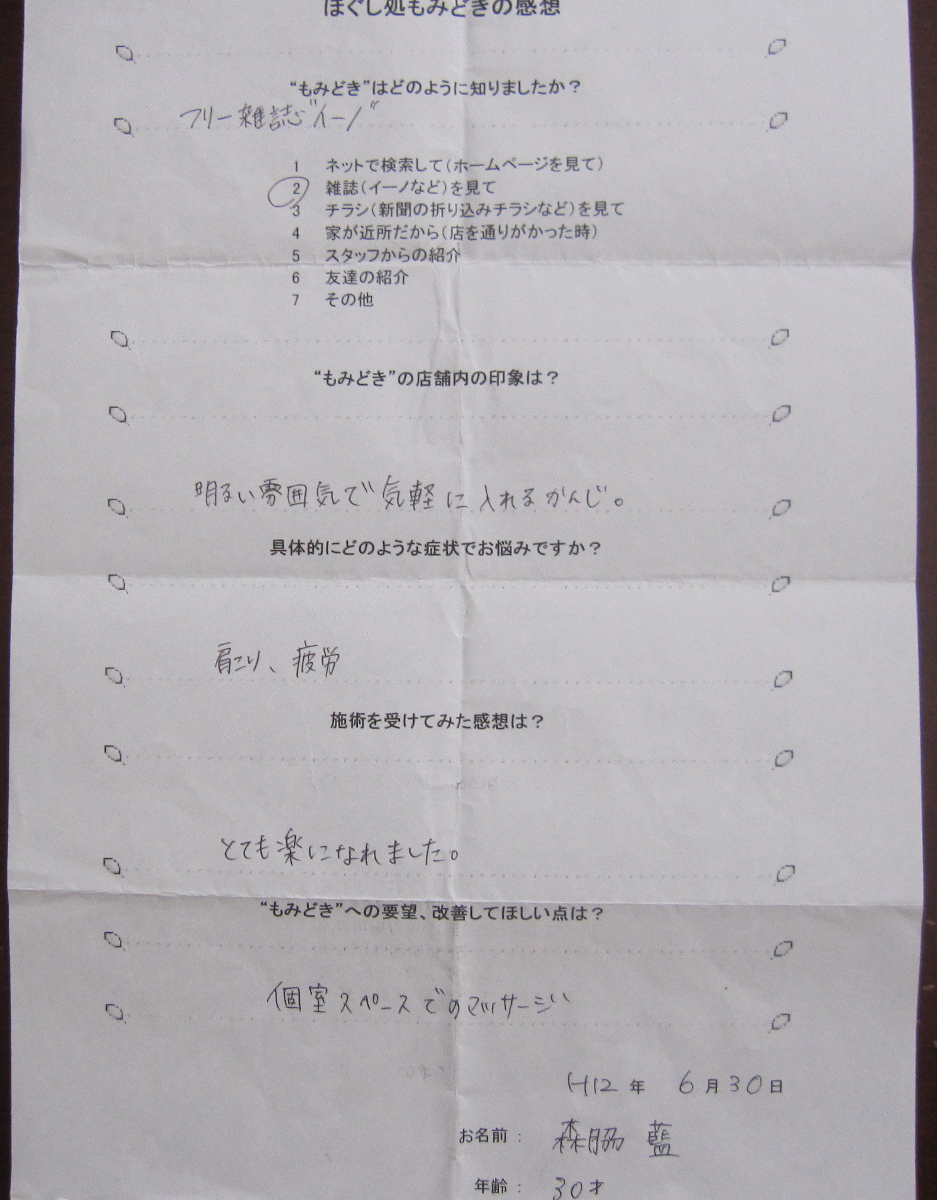 ほぐし処もみどきの感想
“もみどき”はどのように知りましたか？
フリー雑誌"イーノ"
1 ネットで検索して（ホームページを見て）
2 雑誌（イーノなど）を見て
3 チラシ（新聞の折り込みチラシなど）を見て
4 家が近所だから（店を通りがかった時）
5 スタッフからの紹介
6 友達の紹介
7 その他
“もみどき”の店舗内の印象は？
明るい雰囲気で気軽に入れるかんじ。
具体的にどのような症状でお悩みですか？
肩こり、疲労
施術を受けてみた感想は？
とても楽になれました。
“もみどき”への要望、改善してほしい点は？
個室スペースでのマッサージ
H12 年 6 月 30 日
お名前： 森脇 藍
年齢： 30才